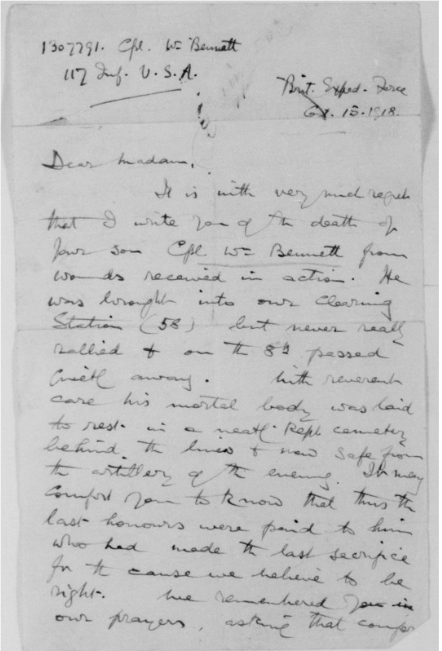 1307791. Cpl. Wm Bennett
117 Inf. U.S.A.
Brit. Exped. Force
Oct. 15. 1918.
Dear Madam,
It is with very much regret
that I write you of th death of
your son Cpl Wm Bennett from
wounds received in action. He
was brought into our Clearing
Station (58) but never really
rallied & on th 8th passed
quietly away. With reverent
care his mortal body was laid
to rest in a neatly kept cemetery
behind th lines & now safe from
th artillery of th enemy. It may
comfort you to know that thus th
last honours were paid to him
who had made th last sacrifice
for th cause we believe to be
right. We remembered you in
our prayers, asking that comfor